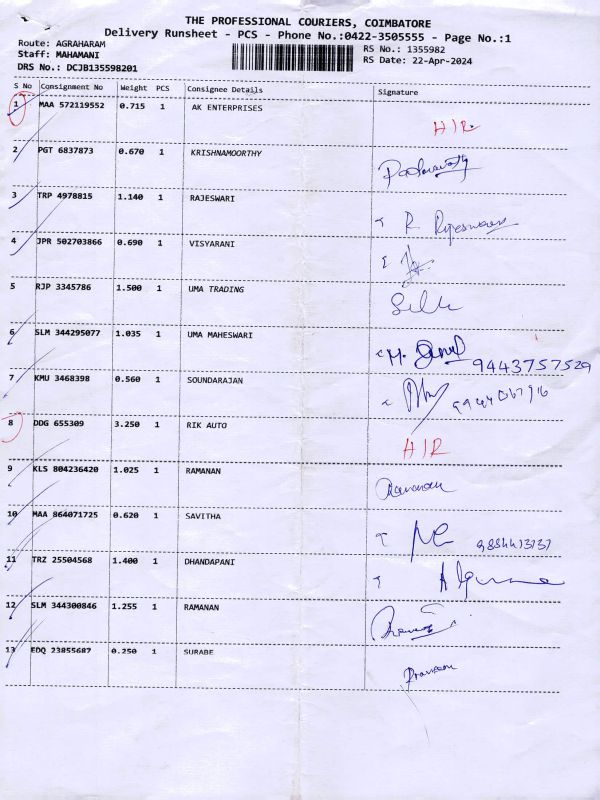 THE PROFESSIONAL COURIERS, COIMBATORE
Delivery Runsheet - PCS - Phone No.:0422-3505555 - Page No.:1
Route: AGRAHARAM
Staff: MAHAMANI
DRS No.: DCJB135598201
RS No.: 1355982
RS Date: 22-Apr-2024
S No Consignment No Weight PCS Consignee Details Signature
1 MAA 572119552 0.715 1 AK ENTERPRISES H/R
2 PGT 6837873 0.670 1 KRISHNAMOORTHY
3 TRP 4978815 1.140 1 RAJESWARI R. Rajeswari
4 JPR 502703866 0.690 1 VISYARANI
5 RJP 3345786 1.500 1 UMA TRADING
6 SLM 344295077 1.035 1 UMA MAHESWARI 9443757529
7 KMU 3468398 0.560 1 SOUNDARAJAN
8 DDG 655309 3.250 1 RIK AUTO H/R
9 KLS 804236420 1.025 1 RAMANAN Ramanan
10 MAA 864071725 0.620 1 SAVITHA
11 TRZ 25504568 1.400 1 DHANDAPANI
12 SLM 344300846 1.255 1 RAMANAN
13 EDQ 23855687 0.250 1 SURABE